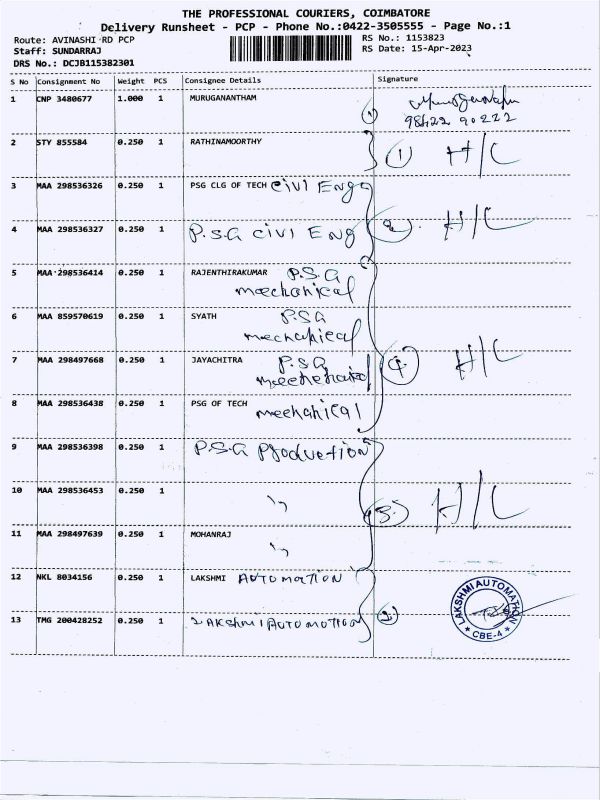 THE PROFESSIONAL COURIERS, COIMBATORE
Delivery Runsheet - PCP - Phone No.:0422-3505555 - Page No.:1
Route: AVINASHI RD PCP
Staff: SUNDARRAJ
DRS No.: DCJB115382301
RS No.: 1153823
RS Date: 15-Apr-2023
S No Consignment No Weight PCS Consignee Details Signature
1 CNP 3480677 1.000 1 MURUGANANTHAM
98422 90222
2 STY 855584 0.250 1 RATHINAMOORTHY 1 H/C
3 MAA 298536326 0.250 1 PSG CLG OF TECH civi Eng
4 MAA 298536327 0.250 1 P.S.G civi Eng 2 H/C
5 MAA 298536414 0.250 1 RAJENTHIRAKUMAR P.S.G
maechanical
6 MAA 859570619 0.250 1 SYATH P.S.G
mechanical
7 MAA 298497668 0.250 1 JAYACHITRA P.S.G 4. H/C
8 MAA 298536438 0.250 1 PSG OF TECH meehanical
9 MAA 298536398 0.250 1 P.S.G Production
10 MAA 298536453 0.250 1 ,, 5. H/C
11 MAA 298497639 0.250 1 MOHANRAJ
,,
12 NKL 8034156 0.250 1 LAKSHMI AUTOMATION
13 TMG 200428252 0.250 1 LAKSHMI AUTOMOTION
LAKSHMI AUTOMATION
* CBE-4 *